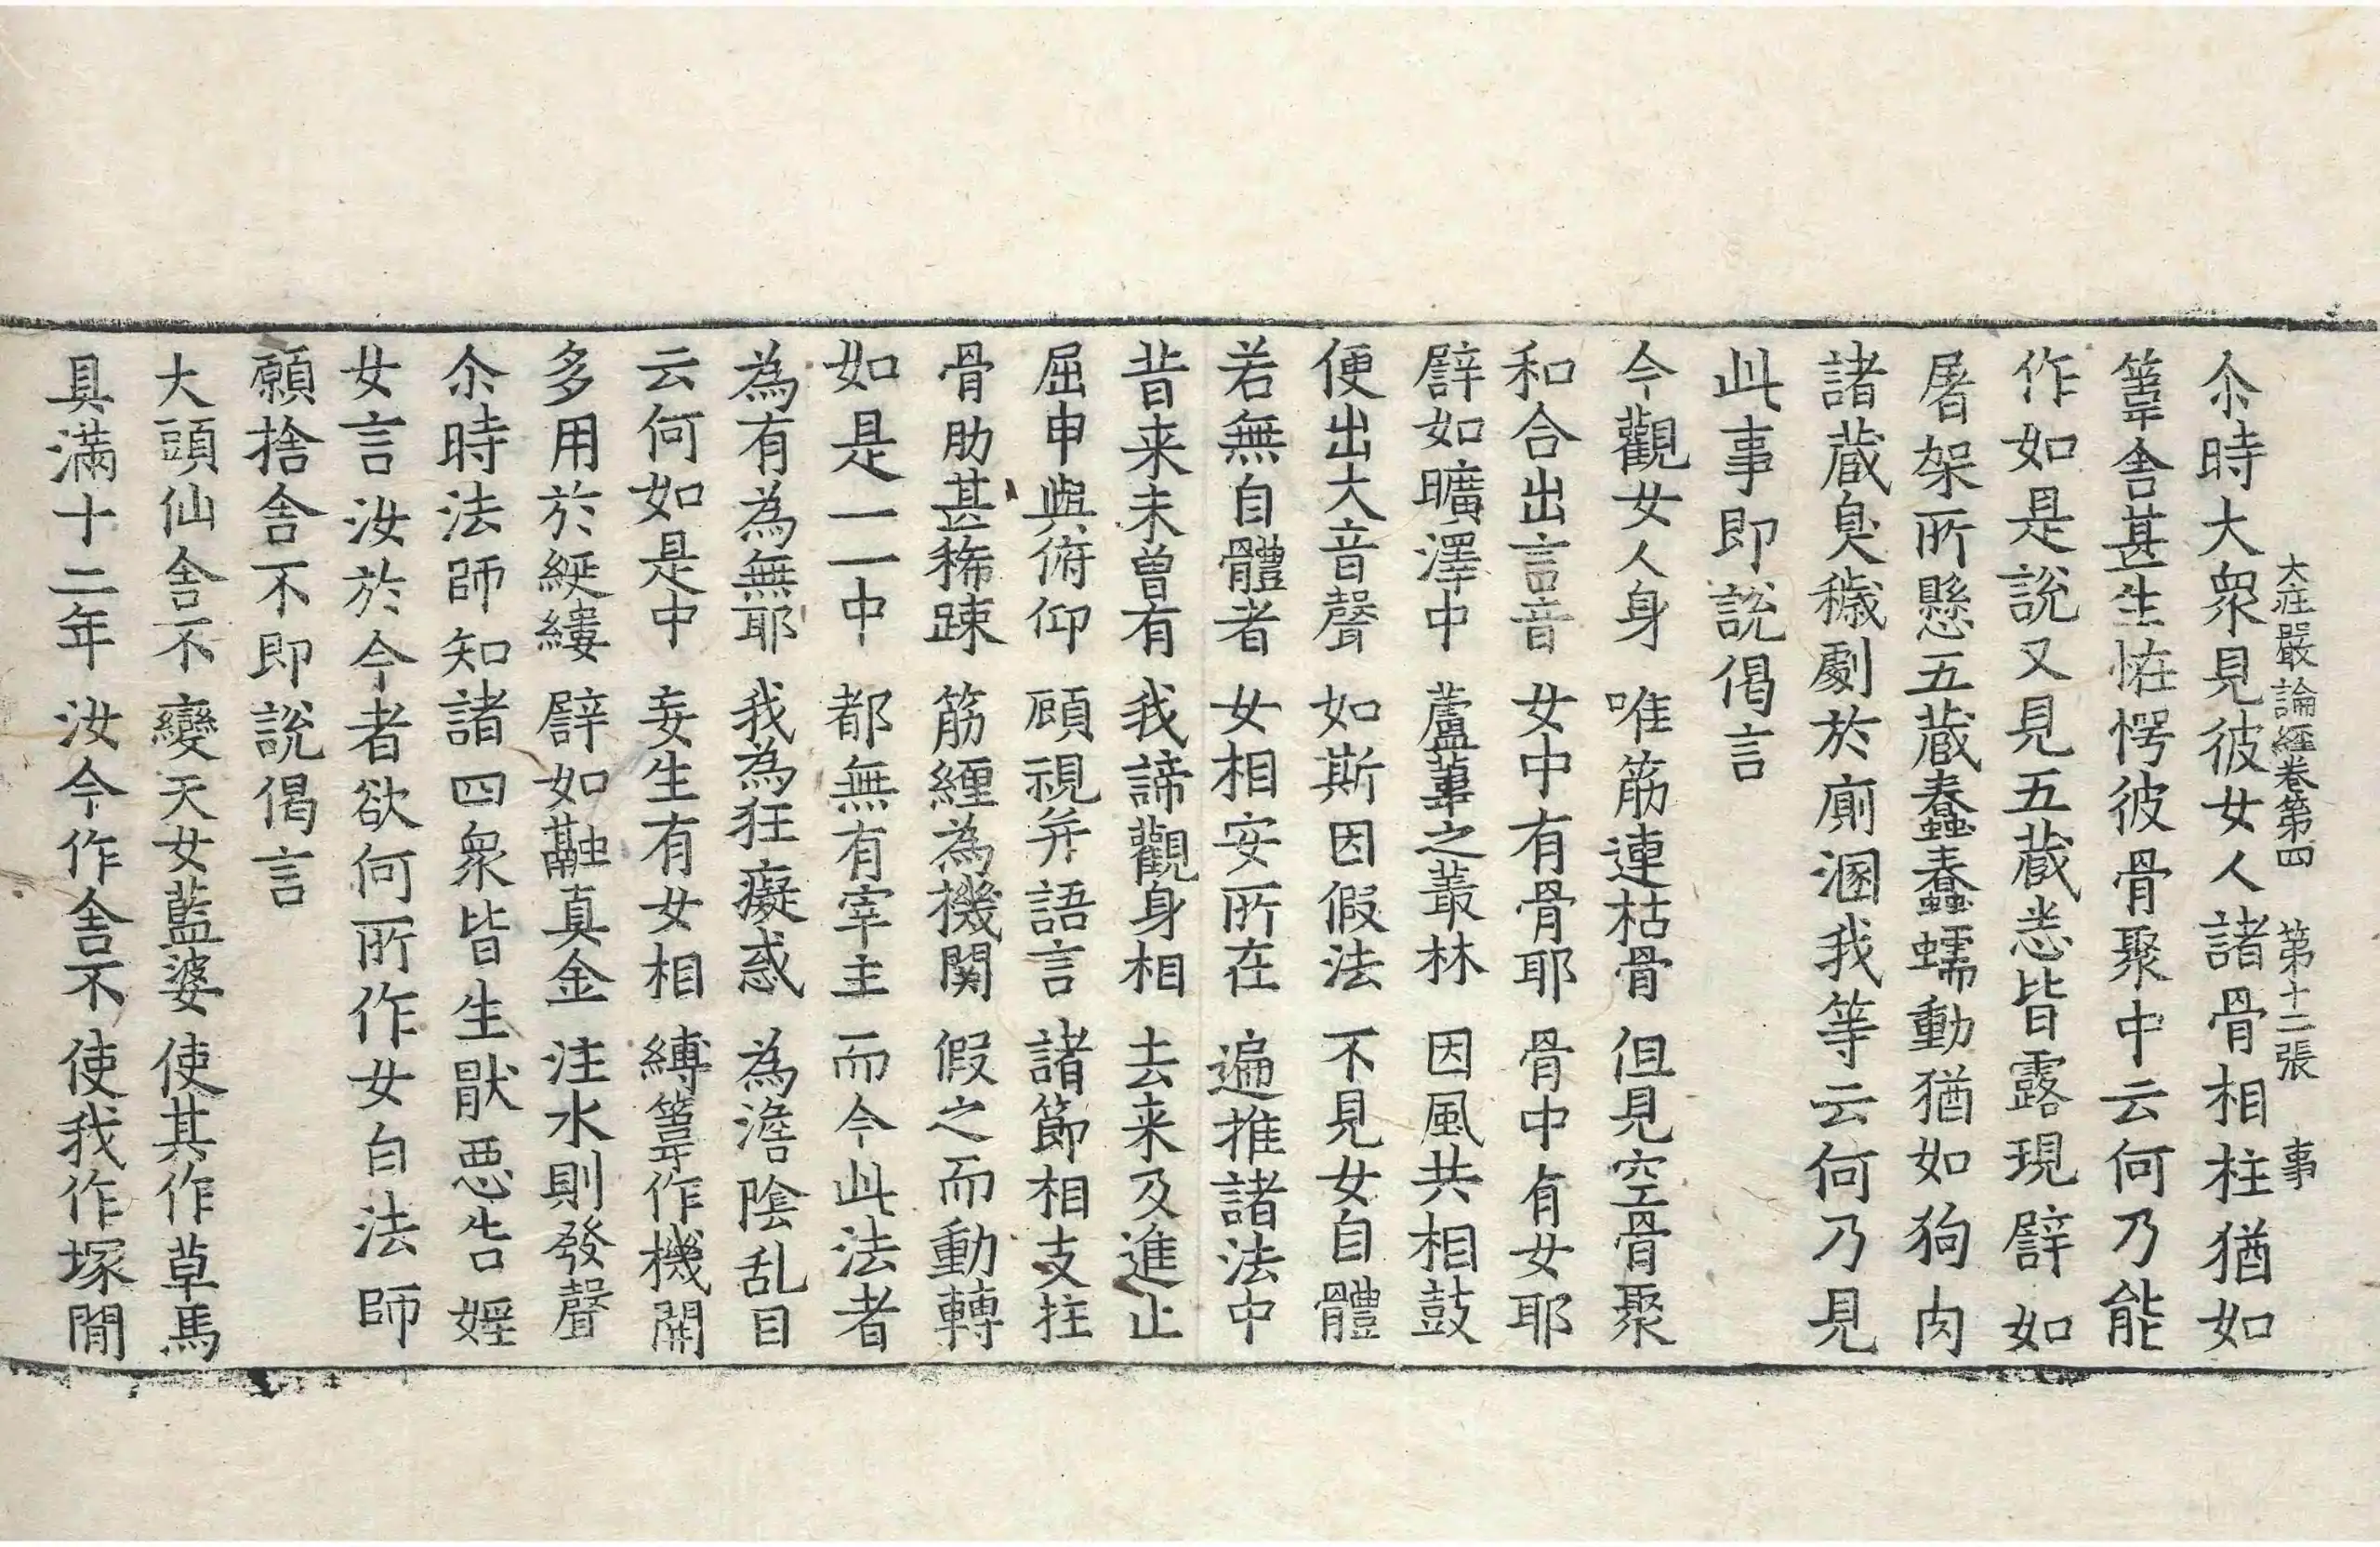 大莊嚴論經卷第四 第十二張 事
尒時大衆見彼女人諸骨相柱猶如
葦舍甚生恠愕彼骨聚中云何乃能
作如是說又見五蔵悉皆露現譬如
屠架所懸五蔵蠢蠢蠕動猶如狗肉
諸蔵臭穢劇於廁溷我等云何乃見
此事即說偈言
今觀女人身 唯筋連枯骨 但見空骨聚
和合出言音 女中有骨耶 骨中有女耶
譬如曠澤中 蘆葦之叢林 因風共相鼓
便出大音聲 如斯因假法 不見女自體
若無自體者 女相安所在 遍推諸法中
昔来未曾有 我諦觀身相 去来及進止
屈申與俯仰 顧視并語言 諸節相支拄
骨肋甚稀踈 筋纏為機関 假之而動轉
如是一一中 都無有宰主 而今此法者
為有為無耶 我為狂癡惑 為澹陰乱目
云何如是中 妄生有女相 縛葦作機關
多用於綖縷 譬如融真金 注水則發聲
尒時法師知諸四衆皆生猒惡告婬
女言汝於今者欲何所作女白法師
願捨舍不即說偈言
大頭仙舍不 變天女藍婆 使其作草馬
具滿十二年 汝今作舍不 使我作塚間